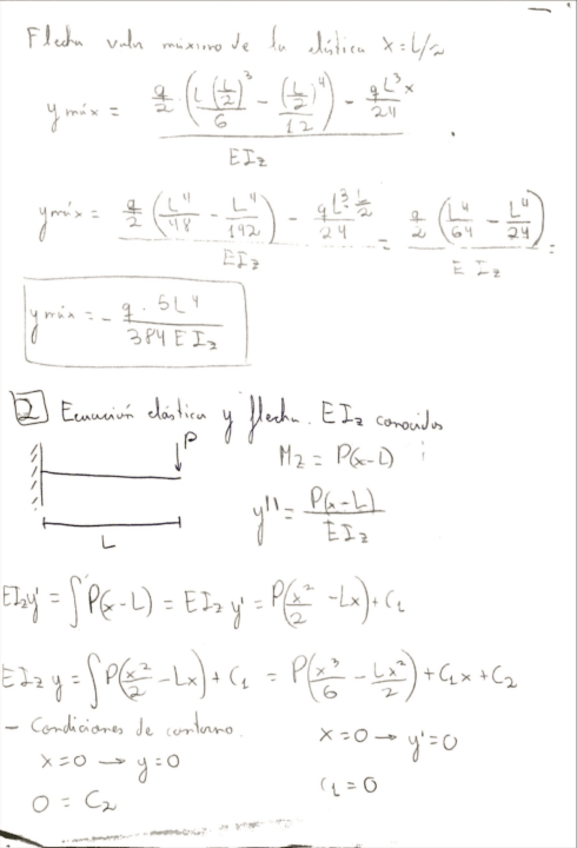 Flecha valor máximo de la elástica x = L/2
y máx = q/2 · (L(L/2)³/6 - (L/2)⁴/12) - qL³x/24 / EIz
y máx = q/2 (L⁴/48 - L⁴/192) - qL³·L/2/24 / EIz = q/2 (L⁴/64 - L⁴/24) / E Iz =
y máx = - q · 5L⁴ / 384 E Iz
2 Ecuación elástica y flecha. EIz conocidos
P
Mz = P(x-L)
y'' = P(x-L) / EIz
L
EIzy' = ∫P(x-L) = EIz y' = P(x²/2 - Lx) + C1
EIz y = ∫P(x²/2 - Lx) + C1 = P(x³/6 - Lx²/2) + C1x + C2
- Condiciones de contorno.
x=0 → y=0
x=0 → y'=0
0 = C2
C1=0